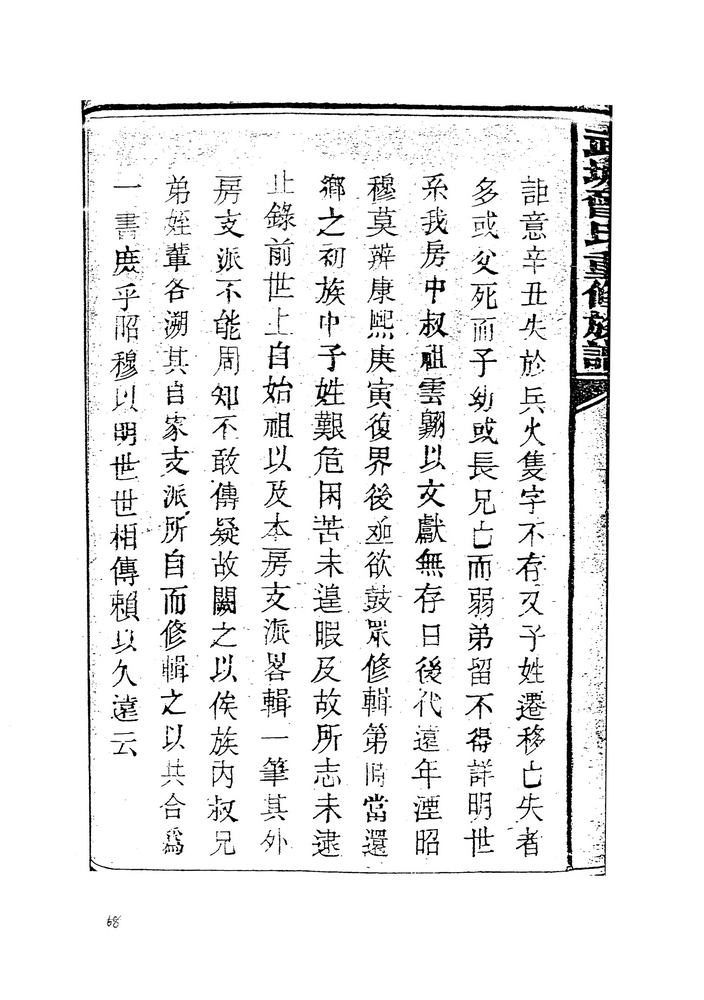 武城曾氏重修族譜
詎意辛丑失於兵火隻字不存又子姓遷移亡失者
多或父死而子幼或長兄亡而弱弟留不得詳明世
系我房中叔祖雲翺以文獻無存日後代遠年湮昭
穆莫辨康熙庚寅復界後亟欲鼓眾修輯第時當還
鄉之初族中子姓艱危困苦未遑暇及故所志未逮
止錄前世上自始祖以及本房支派畧輯一筆其外
房支派不能周知不敢傳疑故闕之以俟族內叔兄
弟姪輩各溯其自家支派所自而修輯之以共合爲
一書庻乎昭穆以明世世相傳賴以久遠云
68